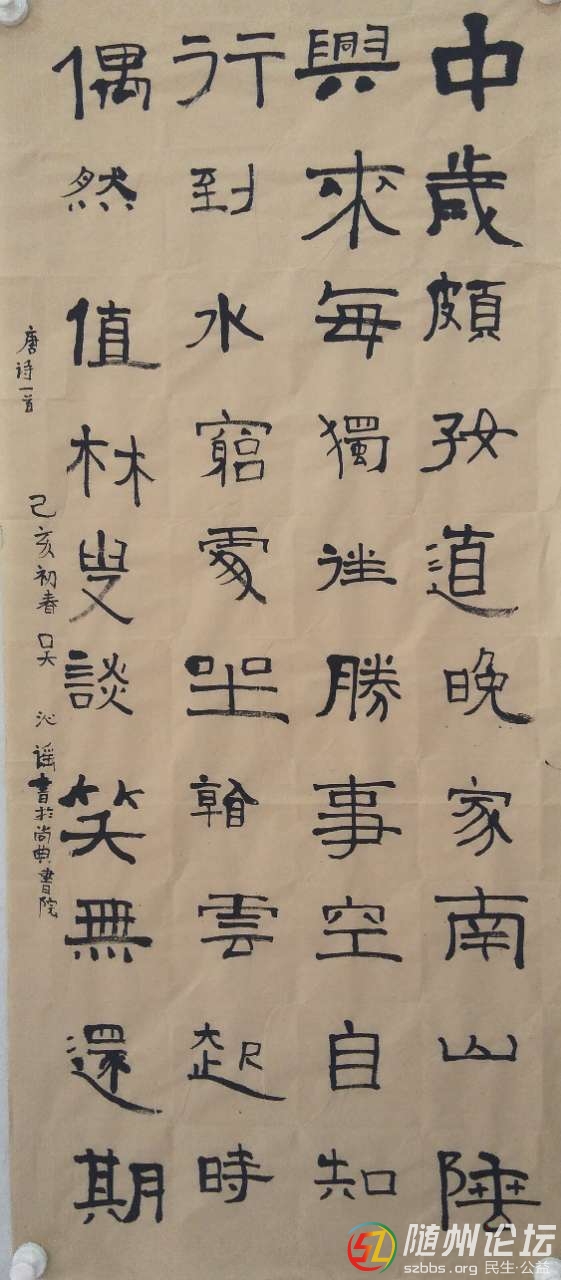 中歲頗好道晚家南山陲
興來每獨往勝事空自知
行到水窮處坐看雲起時
偶然值林叟談笑無還期
唐诗一首
己亥初春吴沁谣書於尚典書院
随州论坛
szbbs.org 民生·公益